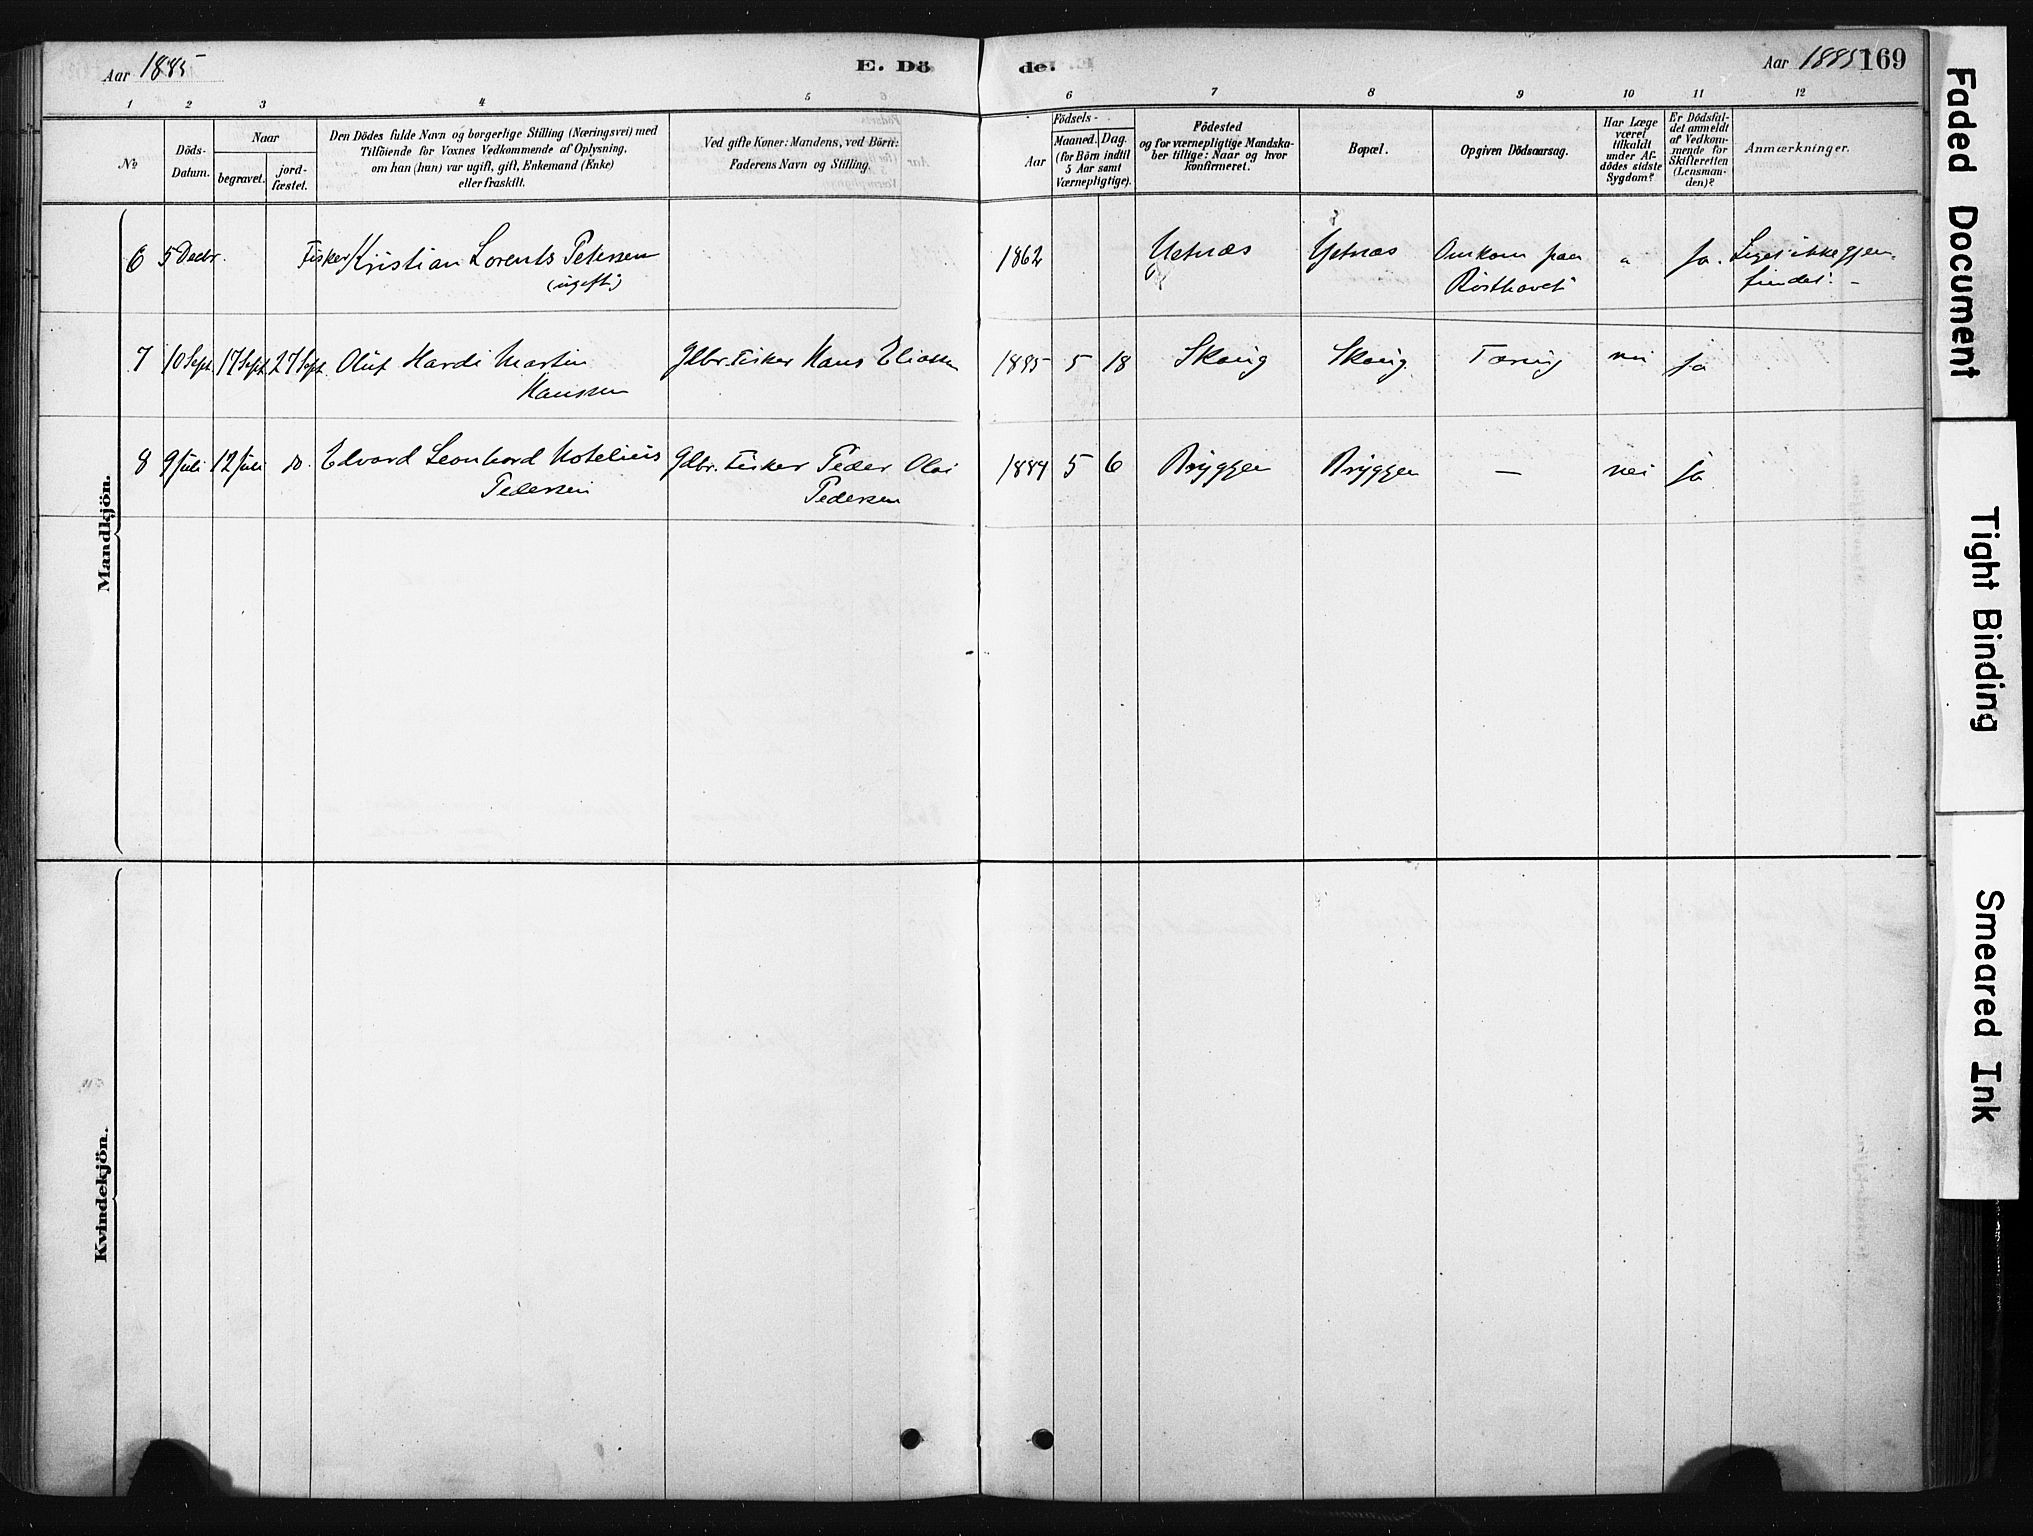 Aar 1885
E. Dö
de.
Aar 1885
169
1 2 3 4 5 6 7 8 9 10 11 12
No
Döds-
Datum.
Naar
begravet.
jord-
fæstet.
Den Dödes fulde Navn og borgerlige Stilling (Næringsvei) med
Tilföiende for Voxnes Vedkommende af Oplysning,
om han (hun) var ugift, gift, Enkemand (Enke)
eller fraskilt.
Ved gifte Koner: Mandens, ved Börn:
Faderens Navn og Stilling.
Födsels-
Aar
Maaned. Dag.
(for Börn indtil
5 Aar samt
Værnepligtige).
Födested
og for værnepligtige Mandska-
ber tillige: Naar og hvor
konfirmeret.
Bopæl.
Opgiven Dödsaarsag.
Har Læge
været
tilkaldt
under Af-
dödes sidste
Sygdom?
Er Dödsfal-
det anmeldt
af Vedkom-
mende for
Skifteretten
(Lensman-
den)?
Anmærkninger.
Mandkjön.
6 5 Decbr. Fisker Kristian Lorents Petersen 1862 Omkom paa " Ja. Liget ikke gjen-
(ugift) Rösthavet findet. –
7 10 Sept. 17 Sept. 27 Sept. Oluf Hardi Martin Gdbr. Fisker Hans Eliassen 1885 5 18 Skaug Skaug. Tæring nei ja
Hanssen
8 9 Juli 12 Juli do. Edvard Leonhard Pedersen Gdbr. Fisker Peder Olai 1884 5 6 Bryggen Bryggen — nei ja
Pedersen
Kvindekjön.
Faded Document
Tight Binding
Smeared Ink